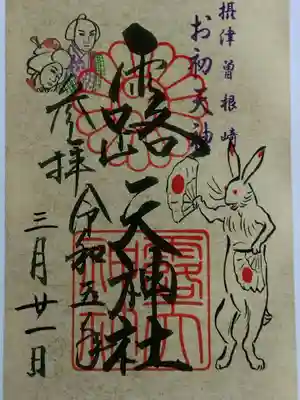 摂津曽根崎
お初天神
露天神社
奉拝
令和五年
三月廿一日
露天神社